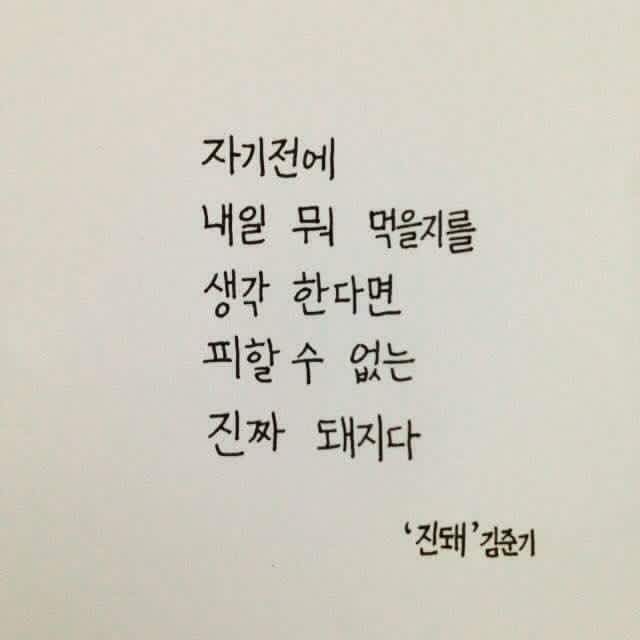 자기전에
내일 뭐 먹을지를
생각 한다면
피할 수 없는
진짜 돼지다
‘진돼’ 김준기